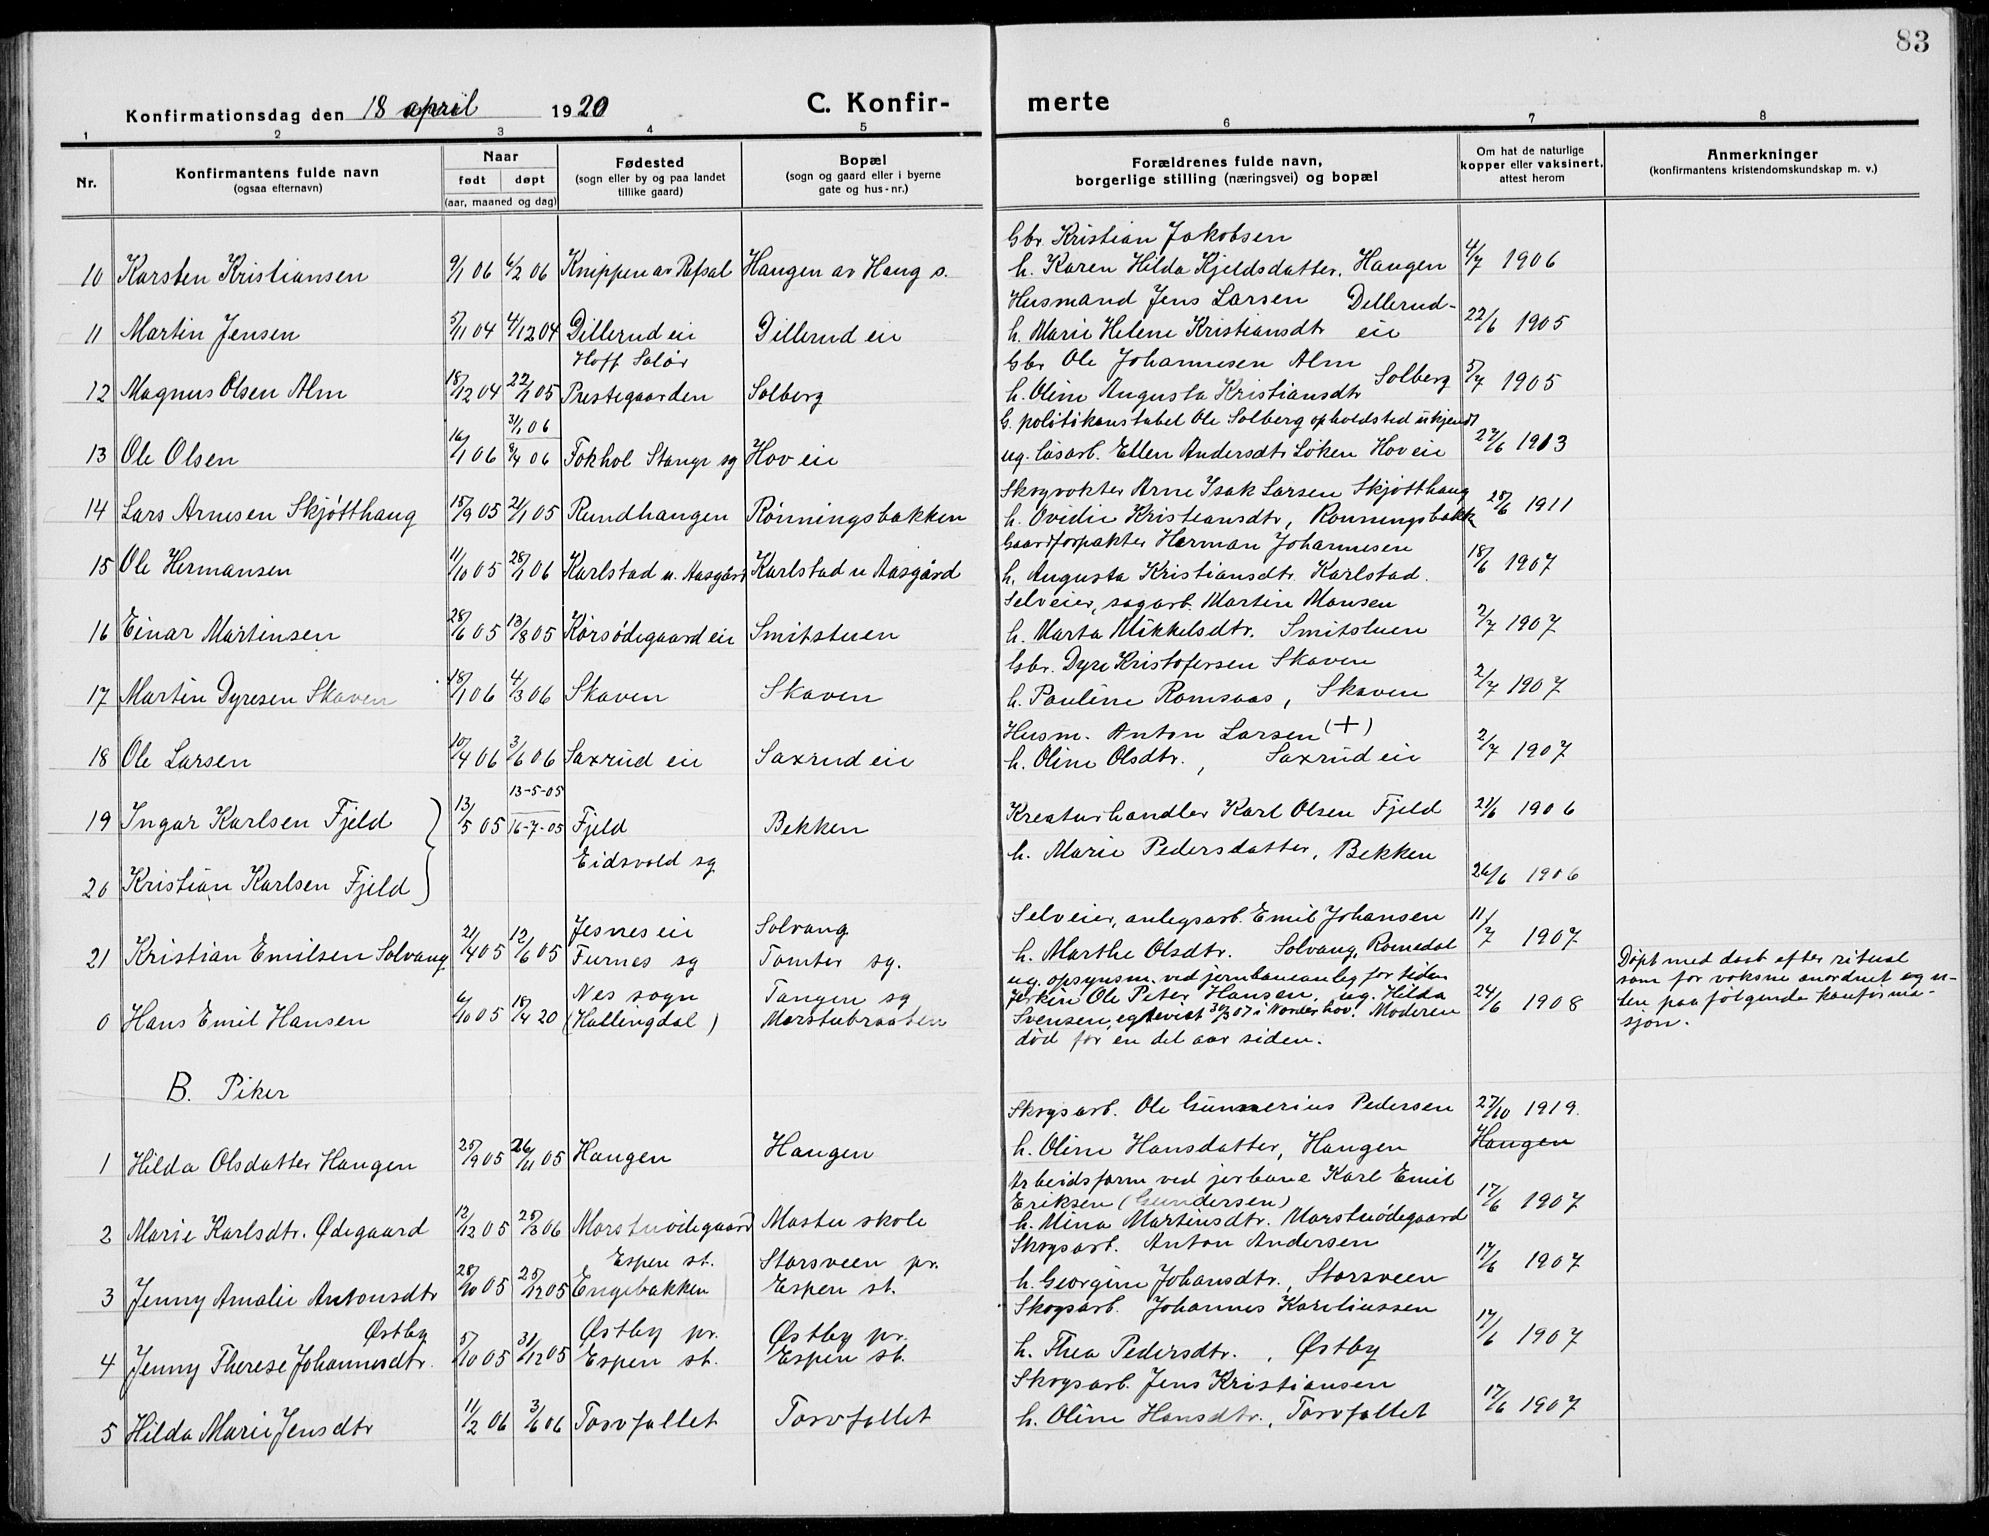 83
Konfirmationsdag den 18 april 1920 C. Konfir- merte
1 2 3 4 5 6 7 8
Nr.
Konfirmantens fulde navn
(ogsaa efternavn)
Naar
født døpt
(aar, maaned og dag)
Fødested
(sogn eller by og paa landet
tillike gaard)
Bopæl
(sogn og gaard eller i byerne
gate og hus-nr.)
Forældrenes fulde navn,
borgerlige stilling (næringsvei) og bopæl
Om hat de naturlige
kopper eller vaksinert,
attest herom
Anmerkninger
(konfirmantens kristendomskundskap m. v.)
Gbr. Kristian Jakobsen
10 Karsten Kristiansen 9/1 06 4/2 06 Knippen av Refsal Haugen av Haug s. h. Karen Hilda Kjeldsdatter, Haugen 4/7 1906
Husmand Jens Larsen Dillerud-
11 Martin Jensen 5/11 04 4/12 04 Dillerud eie Dillerud eie h. Marie Helene Kristiansdtr eie 22/6 1905
Hoff Solør Gbr Ole Johannesen Alm
12 Magnus Olsen Alm 18/12 04 22/1 05 Prestegaarden Solberg h. Oline Augusta Kristiansdtr Solberg 5/7 1905
31/1 06 G. politikonstabel Ole Solberg opholdsted ukjendt
13 Ole Olsen 16/1 06 9/4 06 Fokhol Stange sg Hov eie ug. løsarb. Ellen Andersdtr Løken Hov eie 27/6 1913
Skogvokter Arne Isak Larsen Skjøtthaug
14 Lars Arnesen Skjøtthaug 15/9 05 21/1 05 Rundhaugen Rønningsbakken h. Ovidie Kristiansdtr, Ronningsbakk 28/6 1911
Gaardforpakter Herman Johannesen
15 Ole Hermansen 11/10 05 28/1 06 Karlstad u. Aasgård Karlstad u Aasgård h. Augusta Kristiansdtr. Karlstad. 18/6 1907
Selveier, sagarb. Martin Monsen
16 Einar Martinsen 28/6 05 13/8 05 Korsødegaard eie Smitstuen h. Marta Mikkelsdtr. Smitstuen 2/7 1907
Gbr. Dyre Kristofersen Skaven
17 Martin Dyresen Skaven 18/1 06 4/3 06 Skaven Skaven h. Pauline Romsaas, Skaven 2/7 1907
Husm. Anton Larsen (+)
18 Ole Larsen 10/4 06 3/6 06 Saxrud eie Saxrud eie h. Oline Olsdtr., Saxrud eie 2/7 1907
13-5-05
19 Ingar Karlsen Fjeld 13/5 05 16-7-05 Fjeld Bekken Kreaturhandler Karl Olsen Fjeld 21/6 1906
Eidsvold sg h. Marie Pedersdatter, Bekken
20 Kristian Karlsen Fjeld 26/6 1906
Jesnes eie Solvang Selveier, anlegsarb. Emil Johansen
21 Kristian Emilsen Solvang 21/4 05 12/6 05 Furnes sg Tomter sg. h. Marthe Olsdtr. Solvang, Romedal 11/7 1907
Nes sogn Tangen sg ug. opsynsm. ved jernbaneanleg for tiden
0 Hans Emil Hansen 6/10 05 18/4 20 (Hallingdal) Morstubraaten Jerkin Ole Peter Hansen, ug. Hilda 24/6 1908
Svensen, egtevist 30/3 07 i Norderhov. Moderen
død for en del aar siden.
Døpt med daab efter ritual
som for voksne anordnet og u-
ten paafølgende konfirma-
sjon.
B. Piker
Skogsarb. Ole Gunnerius Pedersen 27/10 1919.
1 Hilda Olsdatter Haugen 25/9 05 26/11 05 Haugen Haugen h. Oline Hansdatter, Haugen Haugen
Arbeidsform ved jerbane Karl Emil
Eriksen (Gundersen)
2 Marie Karlsdtr. Ødegaard 12/12 05 25/3 06 Morstuødegaard Mostu skole h. Mina Martinsdtr. Morstuødegaard 17/6 1907
Espen st. Storsveen pr. Skogsarb. Anton Andersen
3 Jenny Amalie Antonsdtr 28/10 05 25/12 05 Engebakken Espen st. h. Georgine Johansdtr., Storsveen 17/6 1907
Østby Østby pr. Østby pr. Skogsarb. Johannes Kareliussen
4 Jenny Therese Johannesdtr. 5/10 05 31/12 05 Espen st. Espen st. h. Thea Pedersdtr., Østby 17/6 1907
Skogsarb. Jens Kristiansen
5 Hilda Marie Jensdtr 11/2 06 3/6 06 Torvfallet Torvfallet h. Oline Hansdtr., Torvfallet 17/6 1907